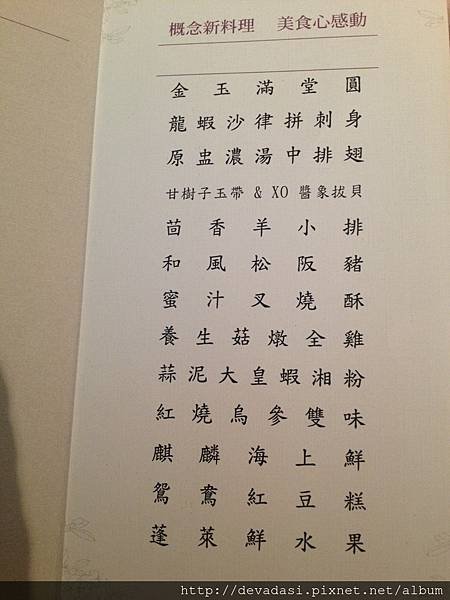 概念新料理 美食心感動
金玉滿堂圓
龍蝦沙律拼刺身
原盅濃湯中排翅
甘樹子玉帶 & XO 醬象拔貝
茴香羊小排
和風松阪豬
蜜汁叉燒酥
養生菇燉全雞
蒜泥大皇蝦湘粉
紅燒烏參雙味
麒麟海上鮮
鴛鴦紅豆糕
蓬萊鮮水果
http://devadasi.pixnet.net/album